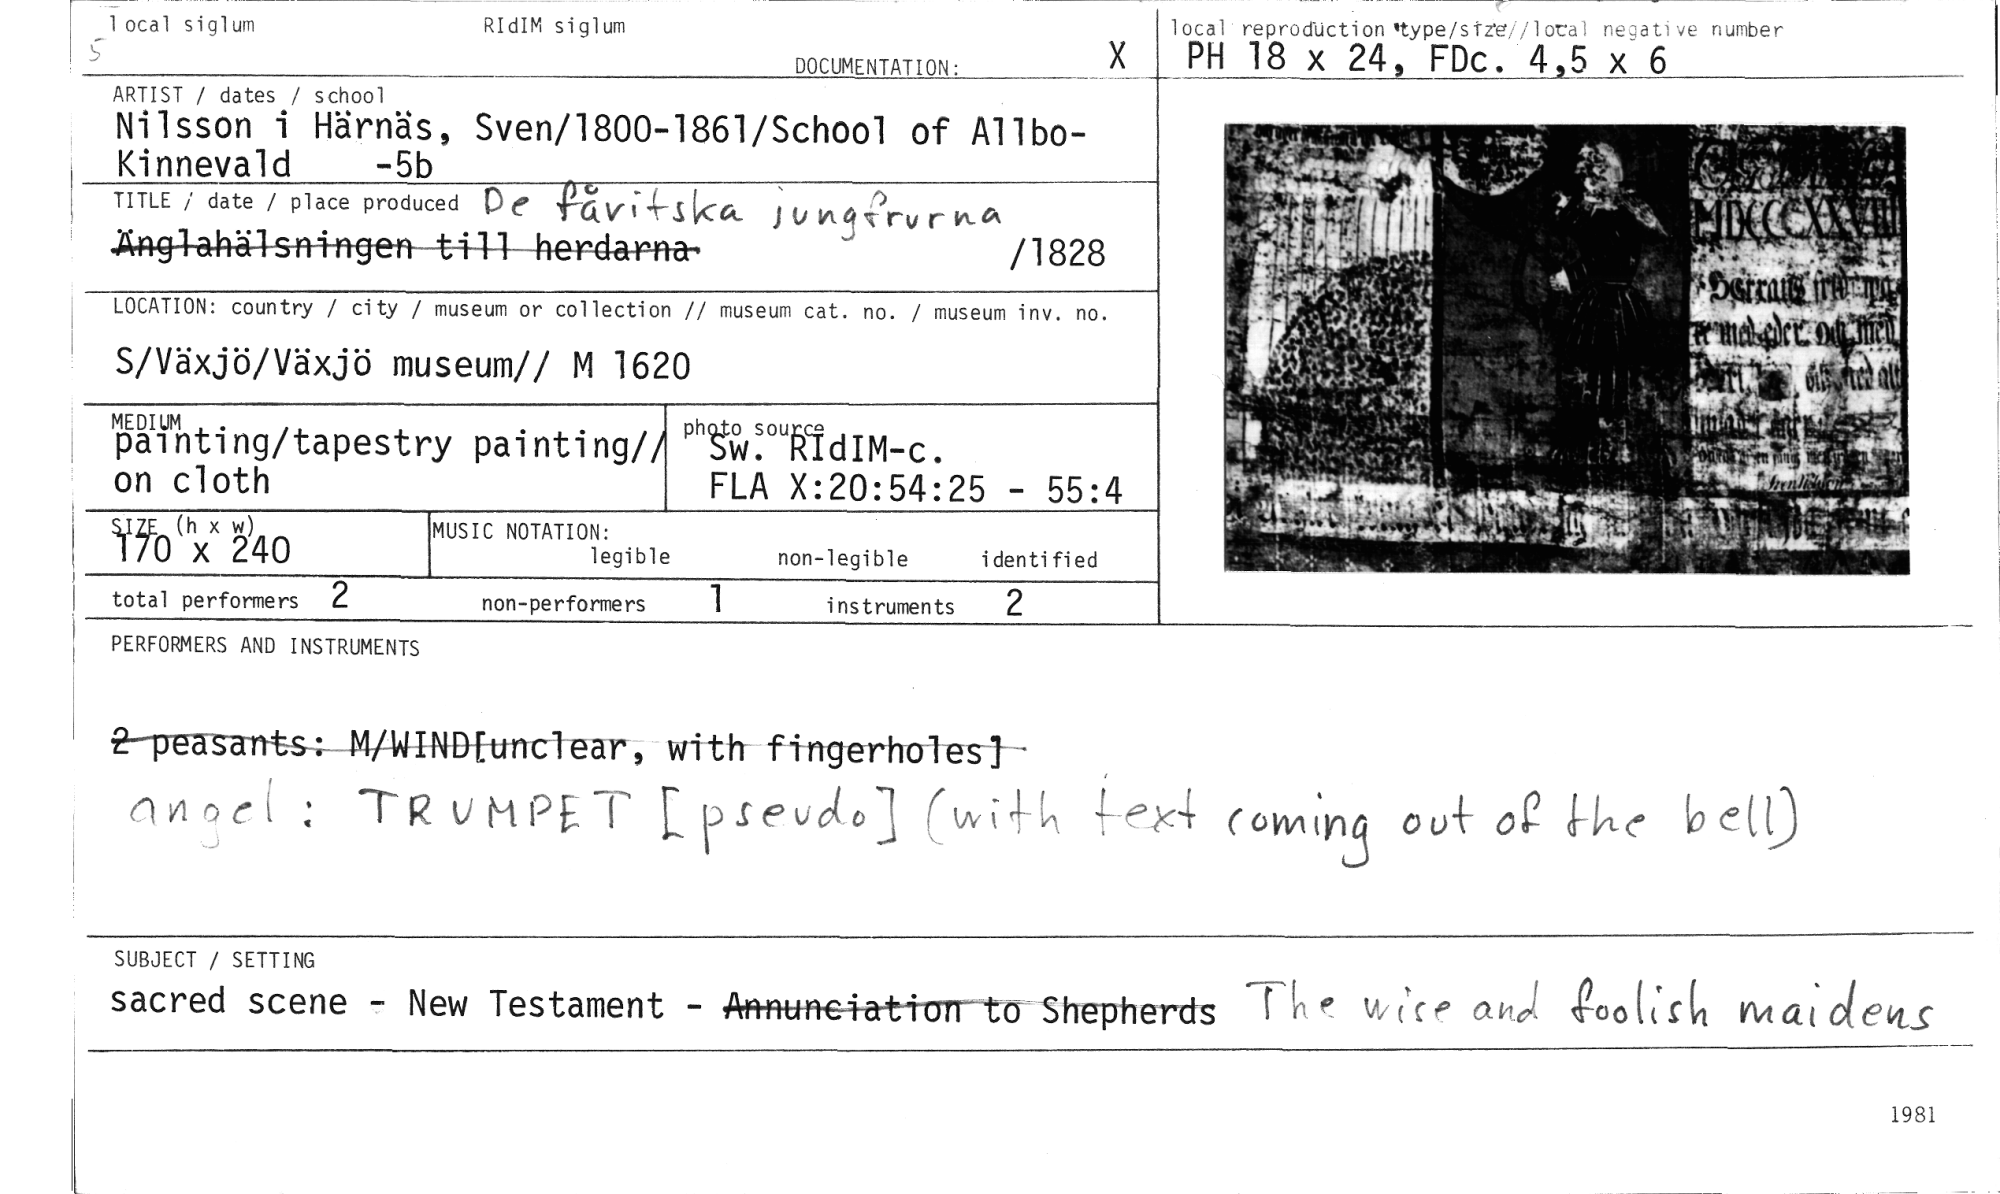 local siglum RIdIM siglum
5
DOCUMENTATION: X
local reproduction type/size//local negative number
PH 18 x 24, FDc. 4,5 x 6
ARTIST / dates / school
Nilsson i Härnäs, Sven/1800-1861/School of Allbo-
Kinnevald -5b
TITLE / date / place produced De fåvitska jungfrurna
Änglahälsningen till herdarna /1828
LOCATION: country / city / museum or collection // museum cat. no. / museum inv. no.
S/Växjö/Växjö museum// M 1620
MEDIUM
painting/tapestry painting//
on cloth
photo source
Sw. RIdIM-c.
FLA X:20:54:25 - 55:4
SIZE (h x w)
170 x 240
MUSIC NOTATION:
legible non-legible identified
total performers 2 non-performers 1 instruments 2
MDCCCXXVIII
PERFORMERS AND INSTRUMENTS
2 peasants: M/WIND[unclear, with fingerholes]
angel: TRUMPET [pseudo] (with text coming out of the bell)
SUBJECT / SETTING
sacred scene - New Testament - Annunciation to Shepherds The wise and foolish maidens
1981